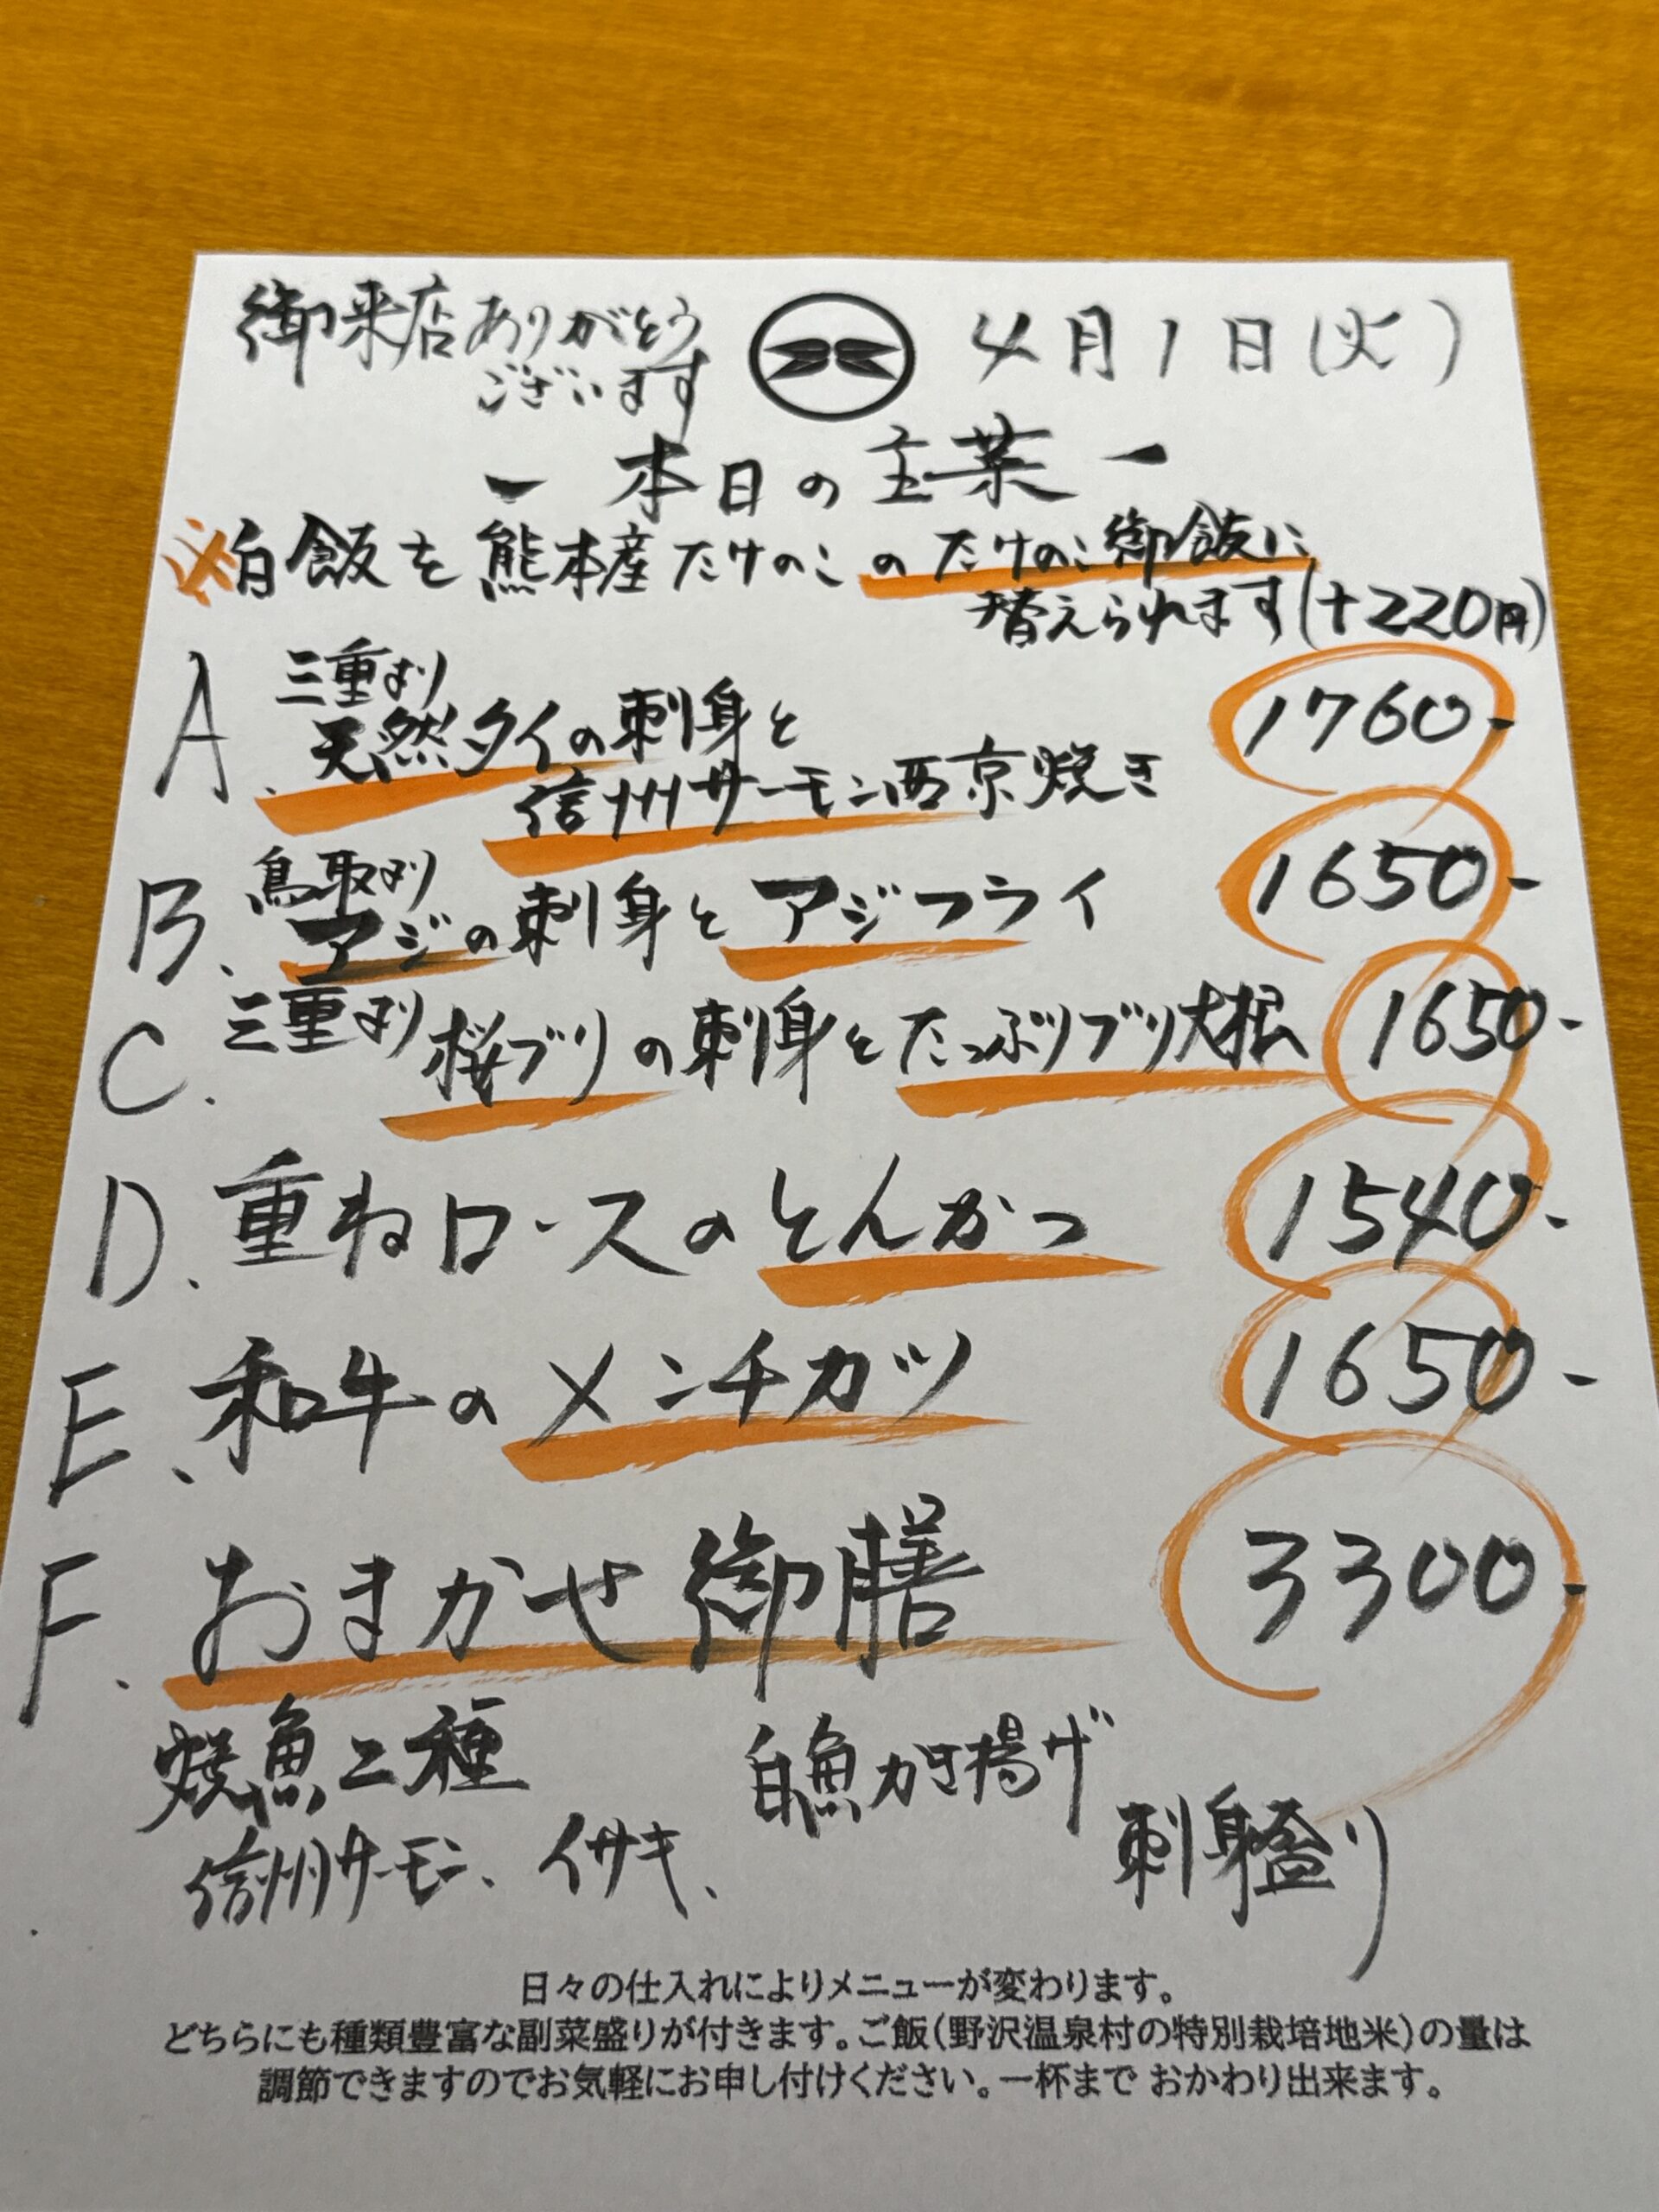 御来店ありがとう
ございます
4月1日(火)
ー本日の主菜ー
※白飯を熊本産たけのこのたけのこ御飯に
替えられます(+220円)
A. 三重より
天然タイの刺身と
信州サーモン西京焼き 1760-
B. 鳥取より
アジの刺身とアジフライ 1650-
C. 三重より 桜ブリの刺身とたっぷりブリ大根 1650-
D. 重ねロースのとんかつ 1540-
E. 和牛のメンチカツ 1650-
F. おまかせ御膳 3300-
焼魚二種 白魚かき揚げ
信州サーモン、イサキ、 刺身盛り
日々の仕入れによりメニューが変わります。
どちらにも種類豊富な副菜盛りが付きます。ご飯(野沢温泉村の特別栽培地米)の量は
調節できますのでお気軽にお申し付けください。一杯まで おかわり出来ます。